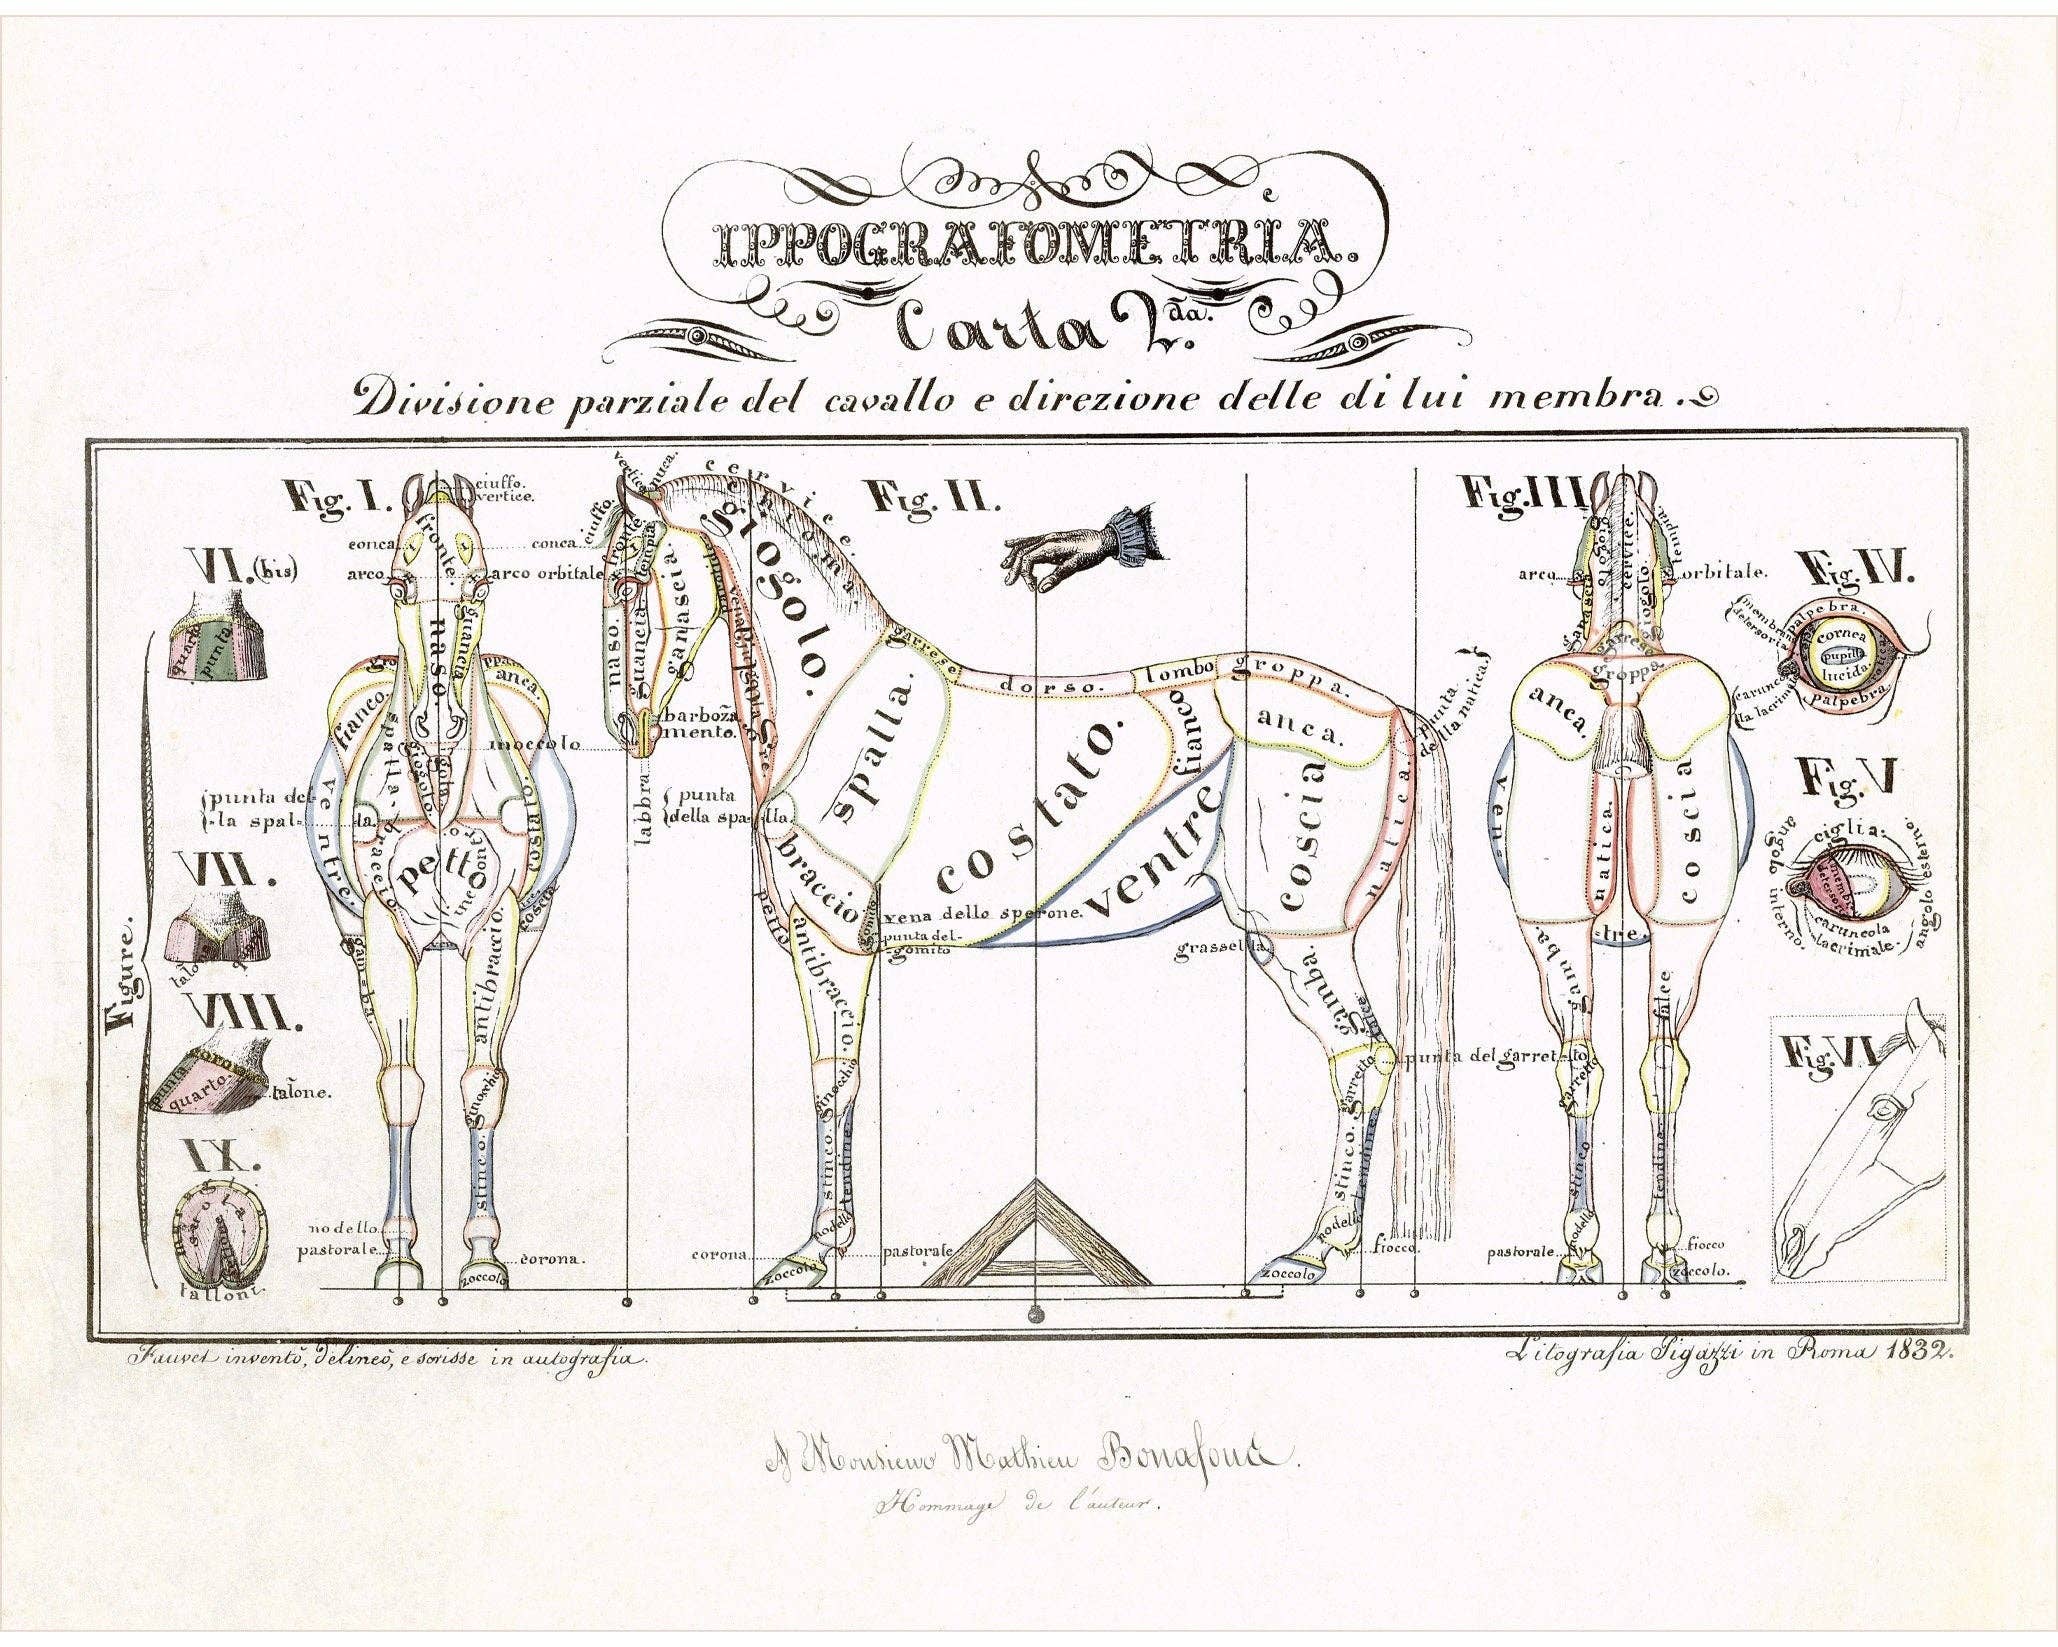 IPPOGRAFOMETRIA.
Carta 2.da
Divisione parziale del cavallo e direzione delle di lui membra.
Fig. I.
ciuffo.
vertice.
fronte.
conca
arco
conca
arco orbitale
naso.
guancia
anca.
fianco.
spalla.
moccolo
punta del-
-la spal-
la.
ventre.
costato.
braccio.
petto
coscia
antibraccio.
gam-ba.
ginocchio
stinco.
nodello
pastorale
corona.
zoccolo
Fig. II.
vertice
nuca.
cervice.
chioma.
ciuffo.
fronte
tempia
naso.
guancia.
ganascia.
gogolo.
barboza
mento.
labbra
punta
della spa-
lla.
garrese
dorso.
lombo
groppa.
spalla.
costato.
fianco
anca.
punta
della natica.
ventre
coscia
natica.
braccio
petto
gomito
vena dello sperone.
punta del-
-gomito
grassella
antibraccio.
gamba.
falce.
ginocchio
garretto
punta del garret-to
stinco.
tendine.
stinco.
tendine
nodello
nodello
fiocco.
corona
pastorale
zoccolo
zoccolo
Fig. III
cervice.
tempia.
arco
orbitale.
ganascia
garrese
groppa.
anca.
ven-
natica.
coscia
-tre.
gamba.
falce
garretto
stinco
tendine.
nodello
pastorale
fiocco
zoccolo.
Fig. IV.
palpebra.
cornea
pupilla
lucida.
palpebra
Fig. V
ciglia.
angolo interno.
angolo esterno.
caruncola
lacrimale.
Fig. VI
Figure.
VI. (bis)
quarto
punta.
VII.
VIII.
corona
punta.
quarto.
talone.
IX.
suola.
talloni.
Fauvet inventò, delineò, e scrisse in autografia.
Litografia Pigazzi in Roma 1832.
A Monsieur Mathieu Bonafous.
Hommage de l'auteur.